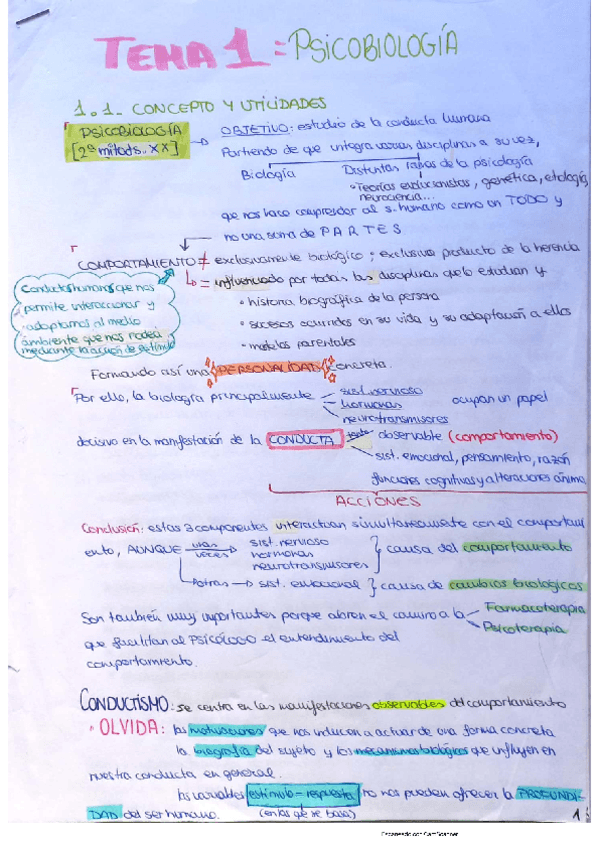 TEMA 1 : PSICOBIOLOGÍA
1.1- CONCEPTO Y UTILIDADES
PSICOBIOLOGÍA → OBJETIVO: estudio de la conducta humana
[2ª mitad s. XX] Partiendo de que integra varias disciplinas a su vez,
Biología Distintas ramas de la psicología
• Teorías evolucionistas, genética, etología,
neurociencia...
que nos hace comprender al s. humano como un TODO y
no una suma de PARTES
COMPORTAMIENTO ≠ exclusivamente biológico; exclusivo producto de la herencia
= influenciado por todas las disciplinas que lo estudian y
Conductas humanas que nos
permite interaccionar y
adaptarnos al medio
ambiente que nos rodea
mediante la acción de estímulo
• historia biográfica de la persona
• sucesos ocurridos en su vida y su adaptación a ellos
• modelos parentales
Formando así una PERSONALIDAD concreta.
Por ello, la biología principalmente sist. nervioso
hormonas ocupan un papel
neurotransmisores
decisivo en la manifestación de la CONDUCTA observable (comportamiento)
sist. emocional, pensamiento, razón
funciones cognitivas y alteraciones ánimo
ACCIONES
Conclusión: estas 3 componentes interactúan simultáneamente con el comportami
ento, AUNQUE unas veces → sist. nervioso
hormonas
neurotransmisores } causa del comportamiento
otras → sist. emocional } causa de cambios biológicos
Son también muy importantes porque abren el camino a la Farmacoterapia
Psicoterapia
que facilitan al PSICÓLOGO el entendimiento del
comportamiento.
CONDUCTISMO: se centra en las manifestaciones observables del comportamiento
• OLVIDA: las motivaciones que nos inducen a actuar de una forma concreta
la biografía del sujeto y los mecanismos biológicos que influyen en
nuestra conducta en general.
las variables estímulo = respuesta no nos pueden ofrecer la PROFUNDI-
DAD del ser humano. (en las que se basa)
1
Escaneado con CamScanner